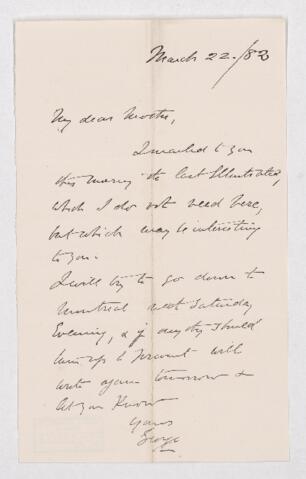 March 22./82
My dear Mother,
I mailed to you
this morning the last Illustrated,
which I do not need here,
but which may be interesting
to you.
I will try to go down to
Montreal next Saturday
Evening, & if anything should
turn up to prevent will
write again tomorrow &
let you know
Yours
George